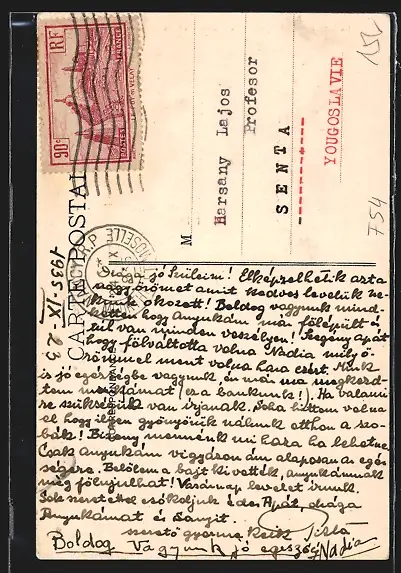 RF
90c
POSTES
FRANCE
LE PUY-EN-VELAY
CARTE POSTALE
MOSELLE
1935-IX-25
M Harsany Lajos
Profesor
SENTA
YOUGOSLAVIE
754
jó Szüleim! Elképzelhetik azt a
nagy örömet amit kedves levelük ne-
künk okozott! Boldog vagyunk mind-
ketten hogy Anyukám már fölépült és
túl van minden veszélyen! Szegény apát
hogy fölváltotta volna Nádia mily ö-
römmel ment volna haza ezért. Mink
is jó egészségbe vagyunk, és már ma megkezd-
tem munkámat (és a bankunk!). Ha valami-
re szükségük van írjanak. Soha hittem volna
el hogy ilyen gyönyörük nálunk otthon a szo-
bák! Bizony mennénk mi haza ha lehetne
Csak anyukám vigyázzon ám alaposan az egés-
ségére. Belőlem a bajt kivették, anyukámnak
még fölujulhat! Vasárnap levelet írunk.
Sok szeretettel csókoljuk édes Apát, drága
Anyukámat és
szerető gyermekeik Pista
Boldog vagyunk jó egészség Nádia